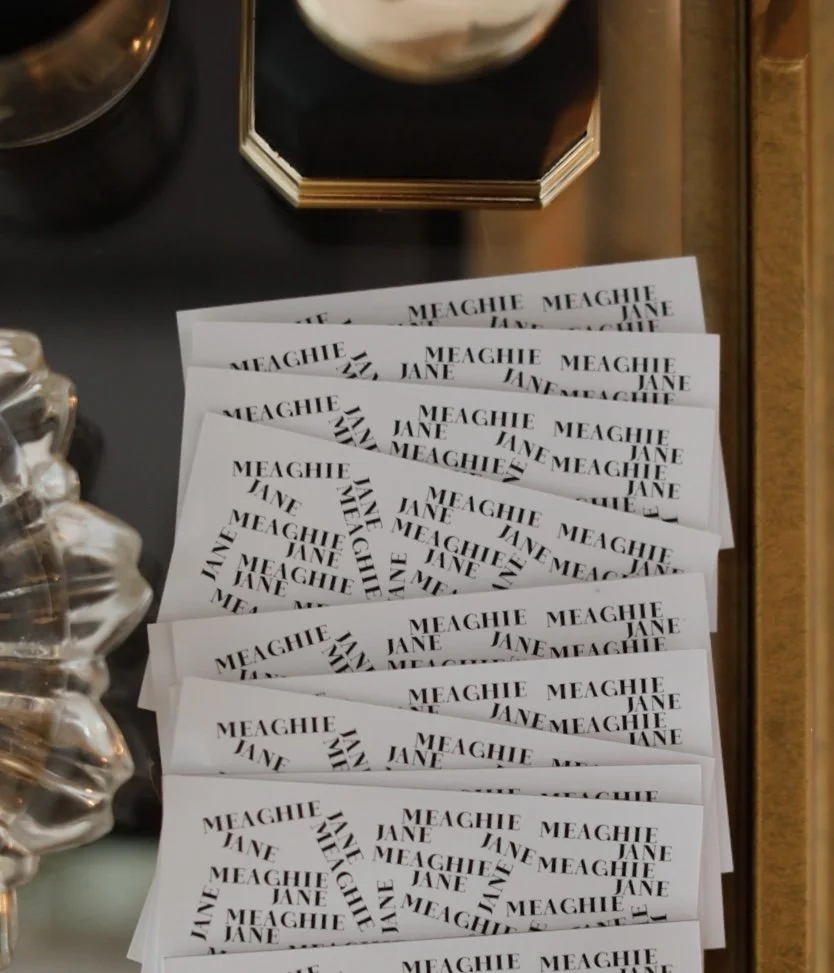 MEAGHIE MEAGHIE
JANE
MEAGHIE MEAGHIE
JANE JANE JANE
MEAGHIE MEAGHIE MEAGHIE
JANE JANE JANE JANE
MEAGHIE MEAGHIE
JANE
MEAGHIE MEAGHIE MEAGHIE
JANE JANE JANE JANE
MEAGHIE MEAGHIE MEAGHIE
JANE JANE JANE
MEAGHIE
JANE
MEAGHIE MEAGHIE MEAGHIE
JANE JANE JANE
MEAGHIE MEAGHIE
JANE JANE
MEAGHIE
JANE
MEAGHIE MEAGHIE
JANE JANE JANE
MEAGHIE MEAGHIE MEAGHIE
JANE JANE JANE JANE JANE
MEAGHIE MEAGHIE MEAGHIE MEAGHIE
JANE JANE JANE JANE JANE JANE
MEAGHIE MEAGHIE MEAGHIE
JANE
MEAGHIE MEAGHIE